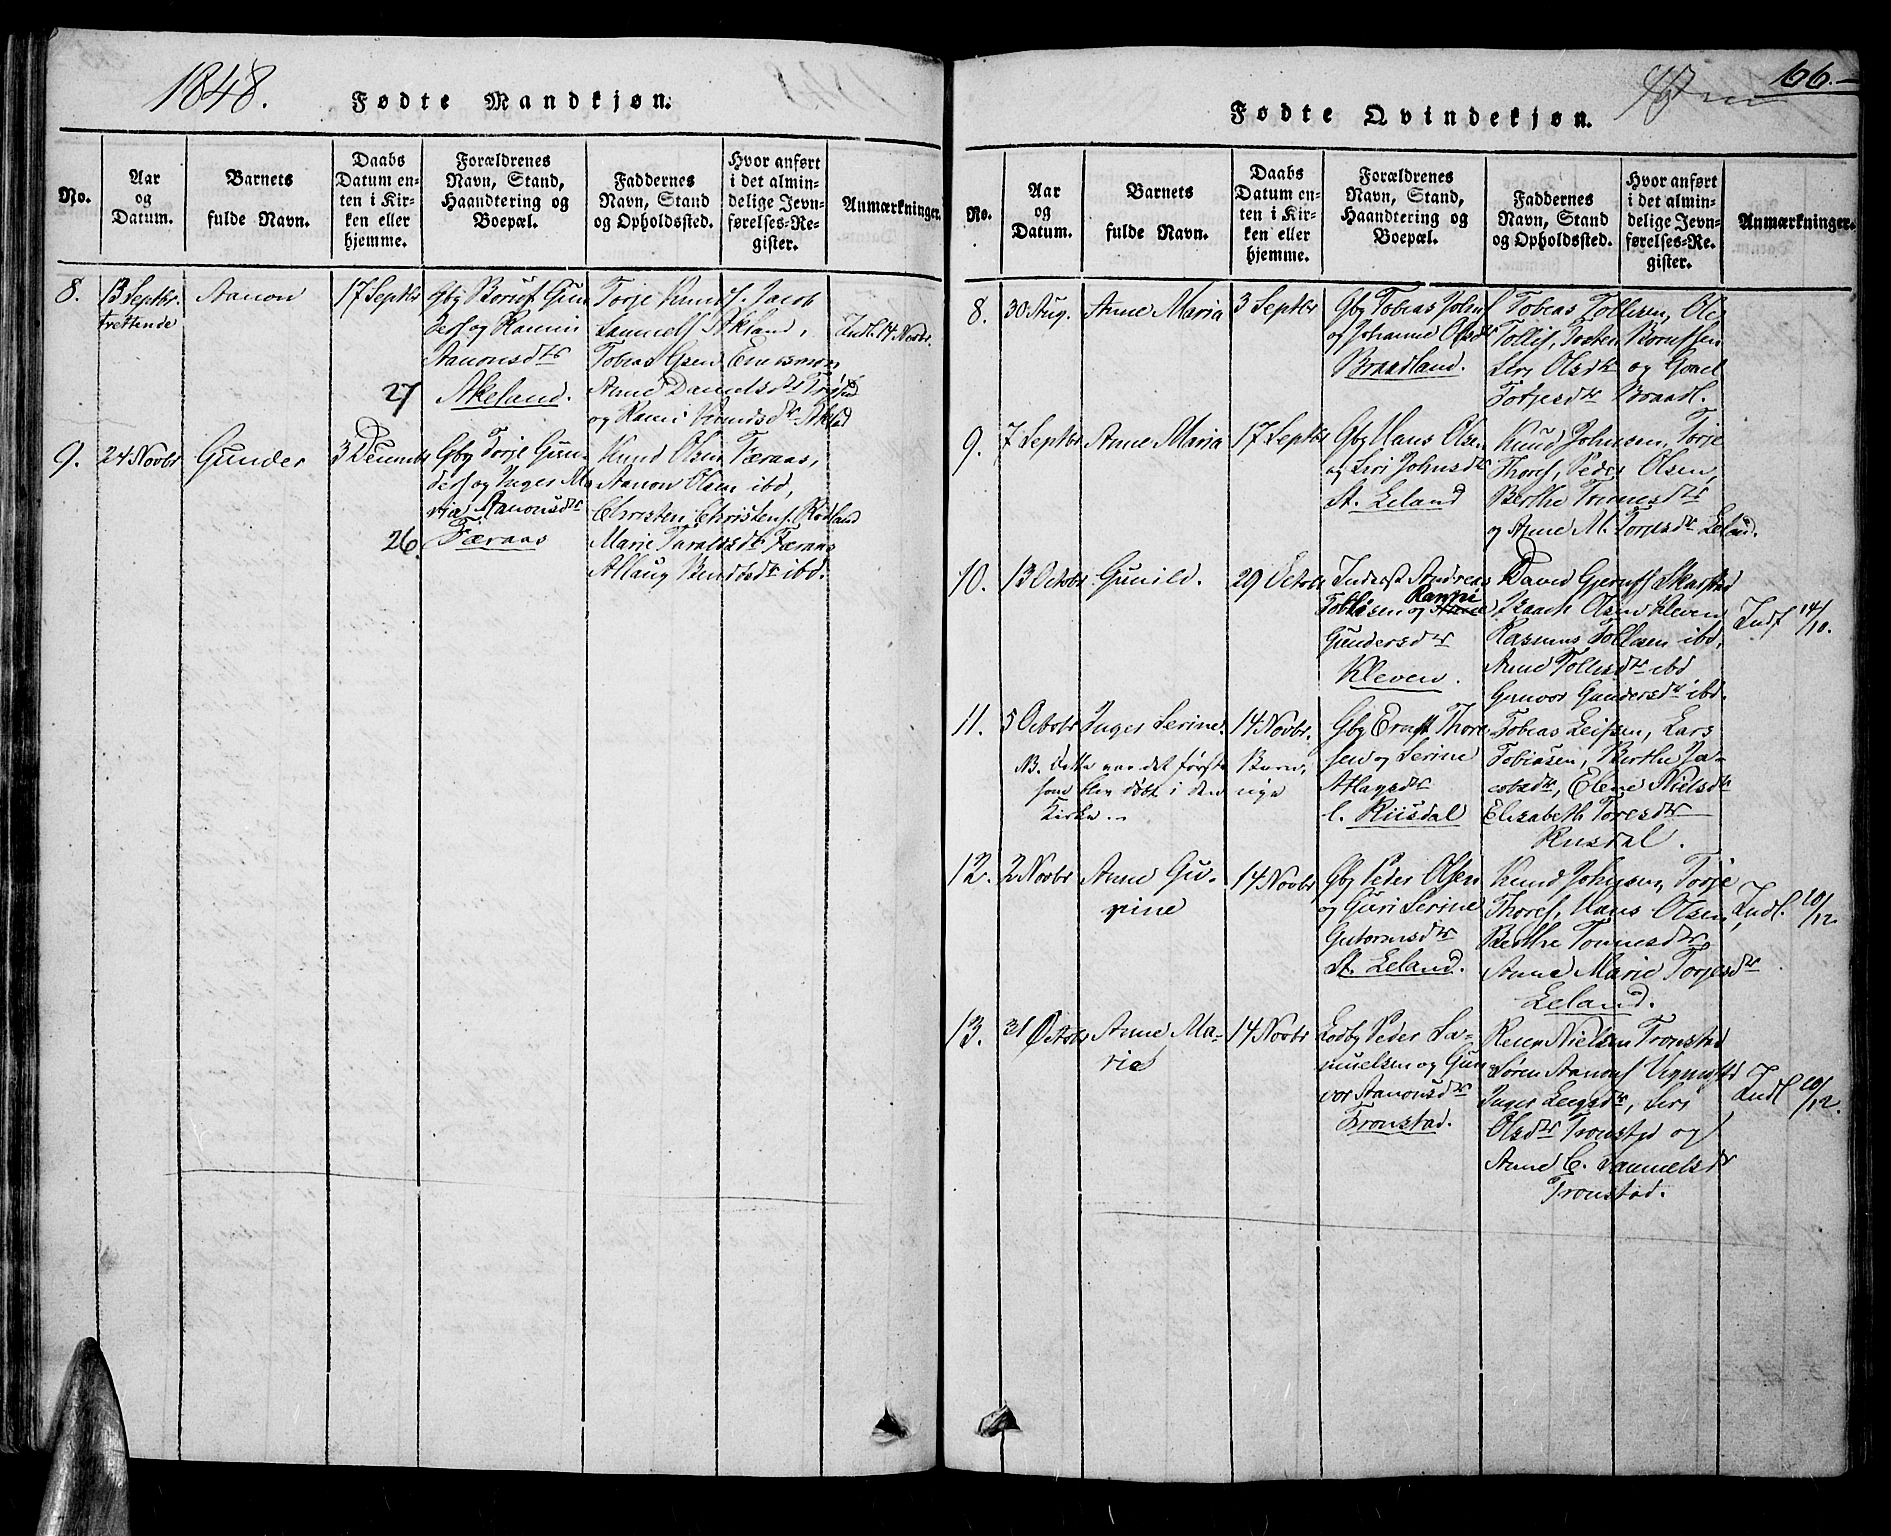 1848.
Fødte Mandkjøn.
No.
Aar og Datum.
Barnets fulde Navn.
Daabs Datum enten i Kirken eller hjemme.
Forældrenes Navn, Stand, Haandtering og Boepæl.
Faddernes Navn, Stand og Opholdssted.
Hvor anført i det almindelige Jevnførelses-Register.
Anmærkninger.
8.
13 Septbr.
trettende
Aanon
17 Septbr
Gby Børuf Gun
ders og Ranni
Aanonsdtr
Akeland.
27
Torje Knuds. Jacob
Samuels Akland,
Tobias
Anne Danielsdtr
og Ranni Knudsdtr Akld
Indl. 14 Novbr.
9.
24 Novbr
Gunder
3 Decembr
Gby Torje Gun
ders og Inger Ma
ria Aanonsdtr
Færaas
26.
Knud Olsen Færaas,
Aanon Olsen ibd,
Christen Christens. Rødland
Marie Taraldsdtr Færaas
Aslaug Bendtsdtr ibd.
66.-
Fødte Qvindekjøn.
No.
Aar og Datum.
Barnets fulde Navn.
Daabs Datum enten i Kirken eller hjemme.
Forældrenes Navn, Stand, Haandtering og Boepæl.
Faddernes Navn, Stand og Opholdssted.
Hvor anført i det almindelige Jevnførelses-Register.
Anmærkninger.
8.
30 Aug.
Anne Maria
3 Septbr
Gby Tobias Johns
og Johanne Olsdtr
Braadland.
Tobias Tollisen, Ole
Tollis, Josten Børufsen
Siri Olsdtr og Goael
Torjesdtr Braadl.
9.
7 Septbr
Anne Maria
17 Septbr
Gby Hans Olsen
og Siri Johnsdtr
St. Eeland
Knud Johnsen, Torje
Thores, Peder Olsen,
Berthe Tønnesdtr
og Anne M. Torjesdtr Eeland.
10.
13 Octobr
Gunild.
29 Octobr
Inderst Andreas
Tollisen og Anne Ranni
Gundersdtr
Kleven.
David Gjerufs Skarpstad
Isaach Olsen Kleven
Rasmus Tollisen ibd,
Anne Tollisdtr ibd
Gunvor Gundersdtr ibd.
Indf 14/10.
11.
5 Octobr
Inger Serine.
14 Novbr.
NB. Dette var det første Barn,
som blev døbt i den nye
Kirke.-
Gby Ernst Thore
sen og Serine
Atlagsdtr
l. Riisdal
Tobias Leifsen, Lars
Tobiasen, Berthe Ja-
cobsdtr, Elene Nielsdtr
Elisabeth Toresdtr
Riisdal.
12.
2 Novbr
Anne Gu-
rine
14 Novbr
Gby Peder Olsen
og Guri Serine
Gutormsdtr
St. Eeland.
Knud Johnsen, Torje
Thores, Hans Olsen,
Berthe Tønnesdtr
Anne Marie Torjesdtr
Eeland.
Indl. 20/12
13.
31 Octobr
Anne Ma-
rie
14 Novbr
Lodby Peder Sa-
muelsen og Gun
vor Aanonsdtr
Tronstad.
Reier Nielsen Tronstad
Søren Aanons
Inger Leifsdtr, Siri
Olsdtr Tronstad og
Anne C. Samuelsdtr
Tronstad.
Indl 20/12.